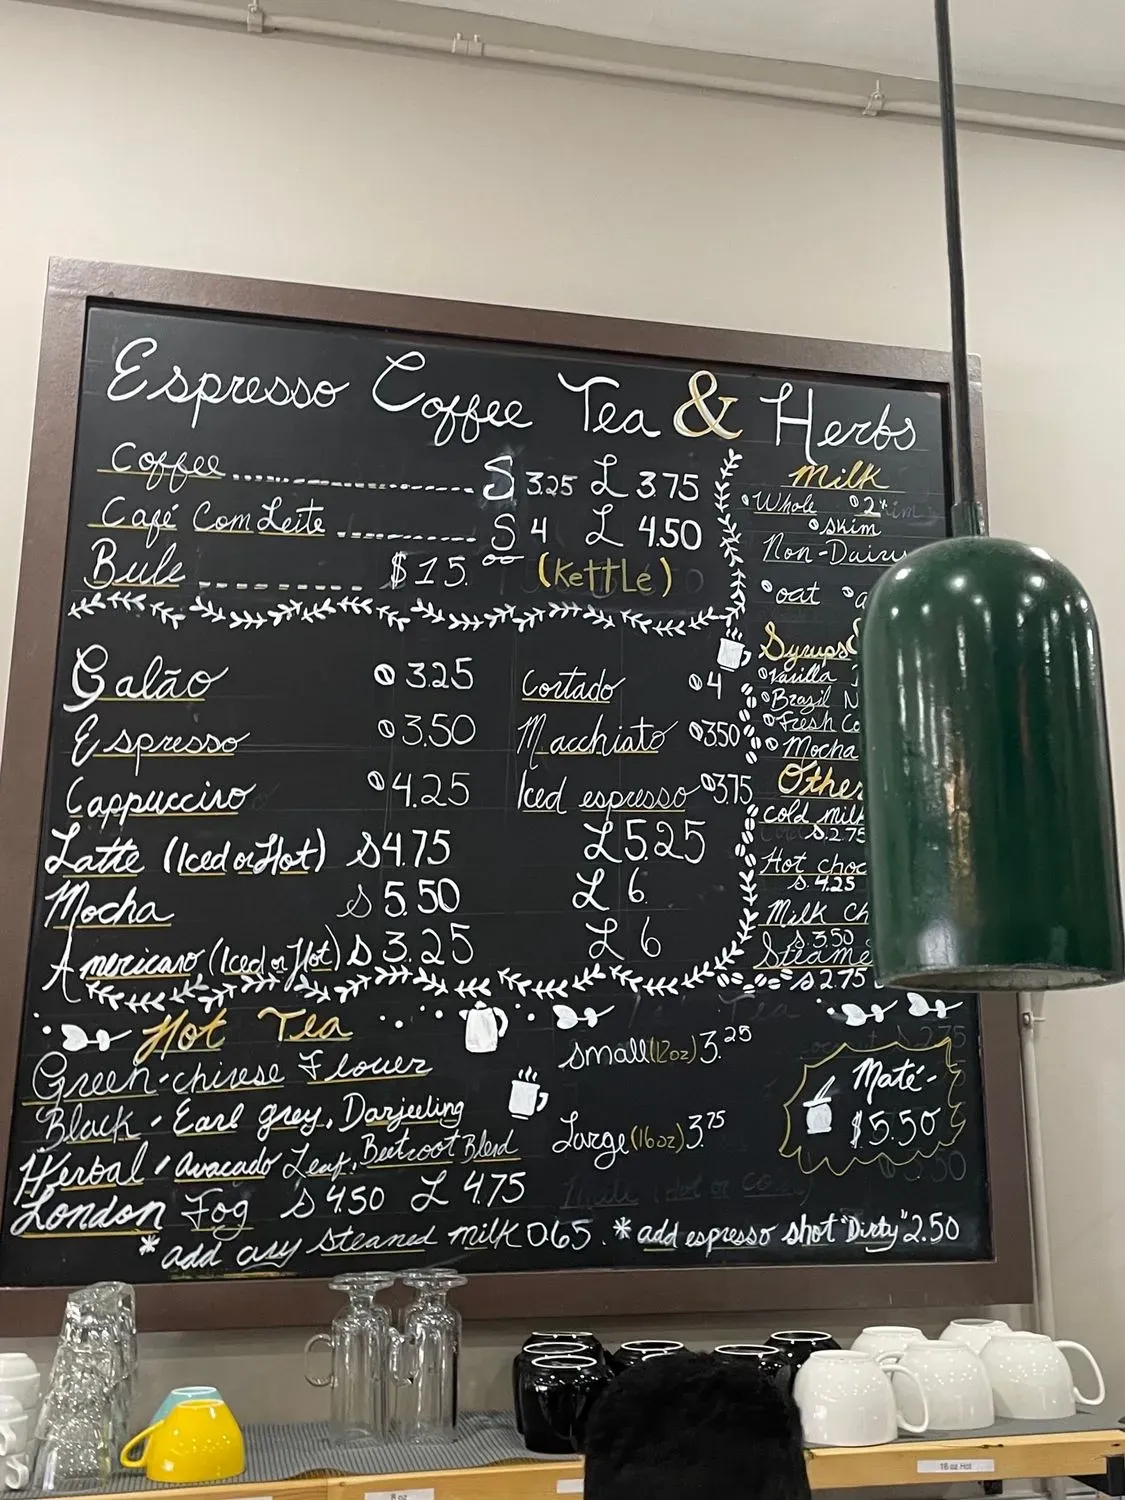 Espresso Coffee Tea & Herbs
Coffee S 3.25 L 3.75
Café Com Leite S 4 L 4.50
Bule $15.00 (Kettle)
Galão 3.25
Espresso 3.50
Cappuccino 4.25
Cortado 4
Macchiato 3.50
Iced espresso 3.75
Latte (Iced or Hot) S 4.75 L 5.25
Mocha S 5.50 L 6.
Americano (Iced or Hot) S 3.25 L 6
Milk
Whole 2%
Skim
Non-Dairy
oat
Syrups
Vanilla
Brazil
Fresh
Mocha
Other
cold milk
S. 2.75
Hot choc
S. 4.25
Milk Ch
S 3.50
Steame
S 2.75
Hot Tea
Green-chinese Flower
Black - Earl grey, Darjeeling
Herbal Avacado Leaf, Beetroot Blend
London Fog S 4.50 L 4.75
small (12oz) 3.25
Large (16oz) 3.75
Maté-
$5.50
*add any steamed milk 0.65. *add espresso shot "Dirty" 2.50
8 oz
16 oz Hot